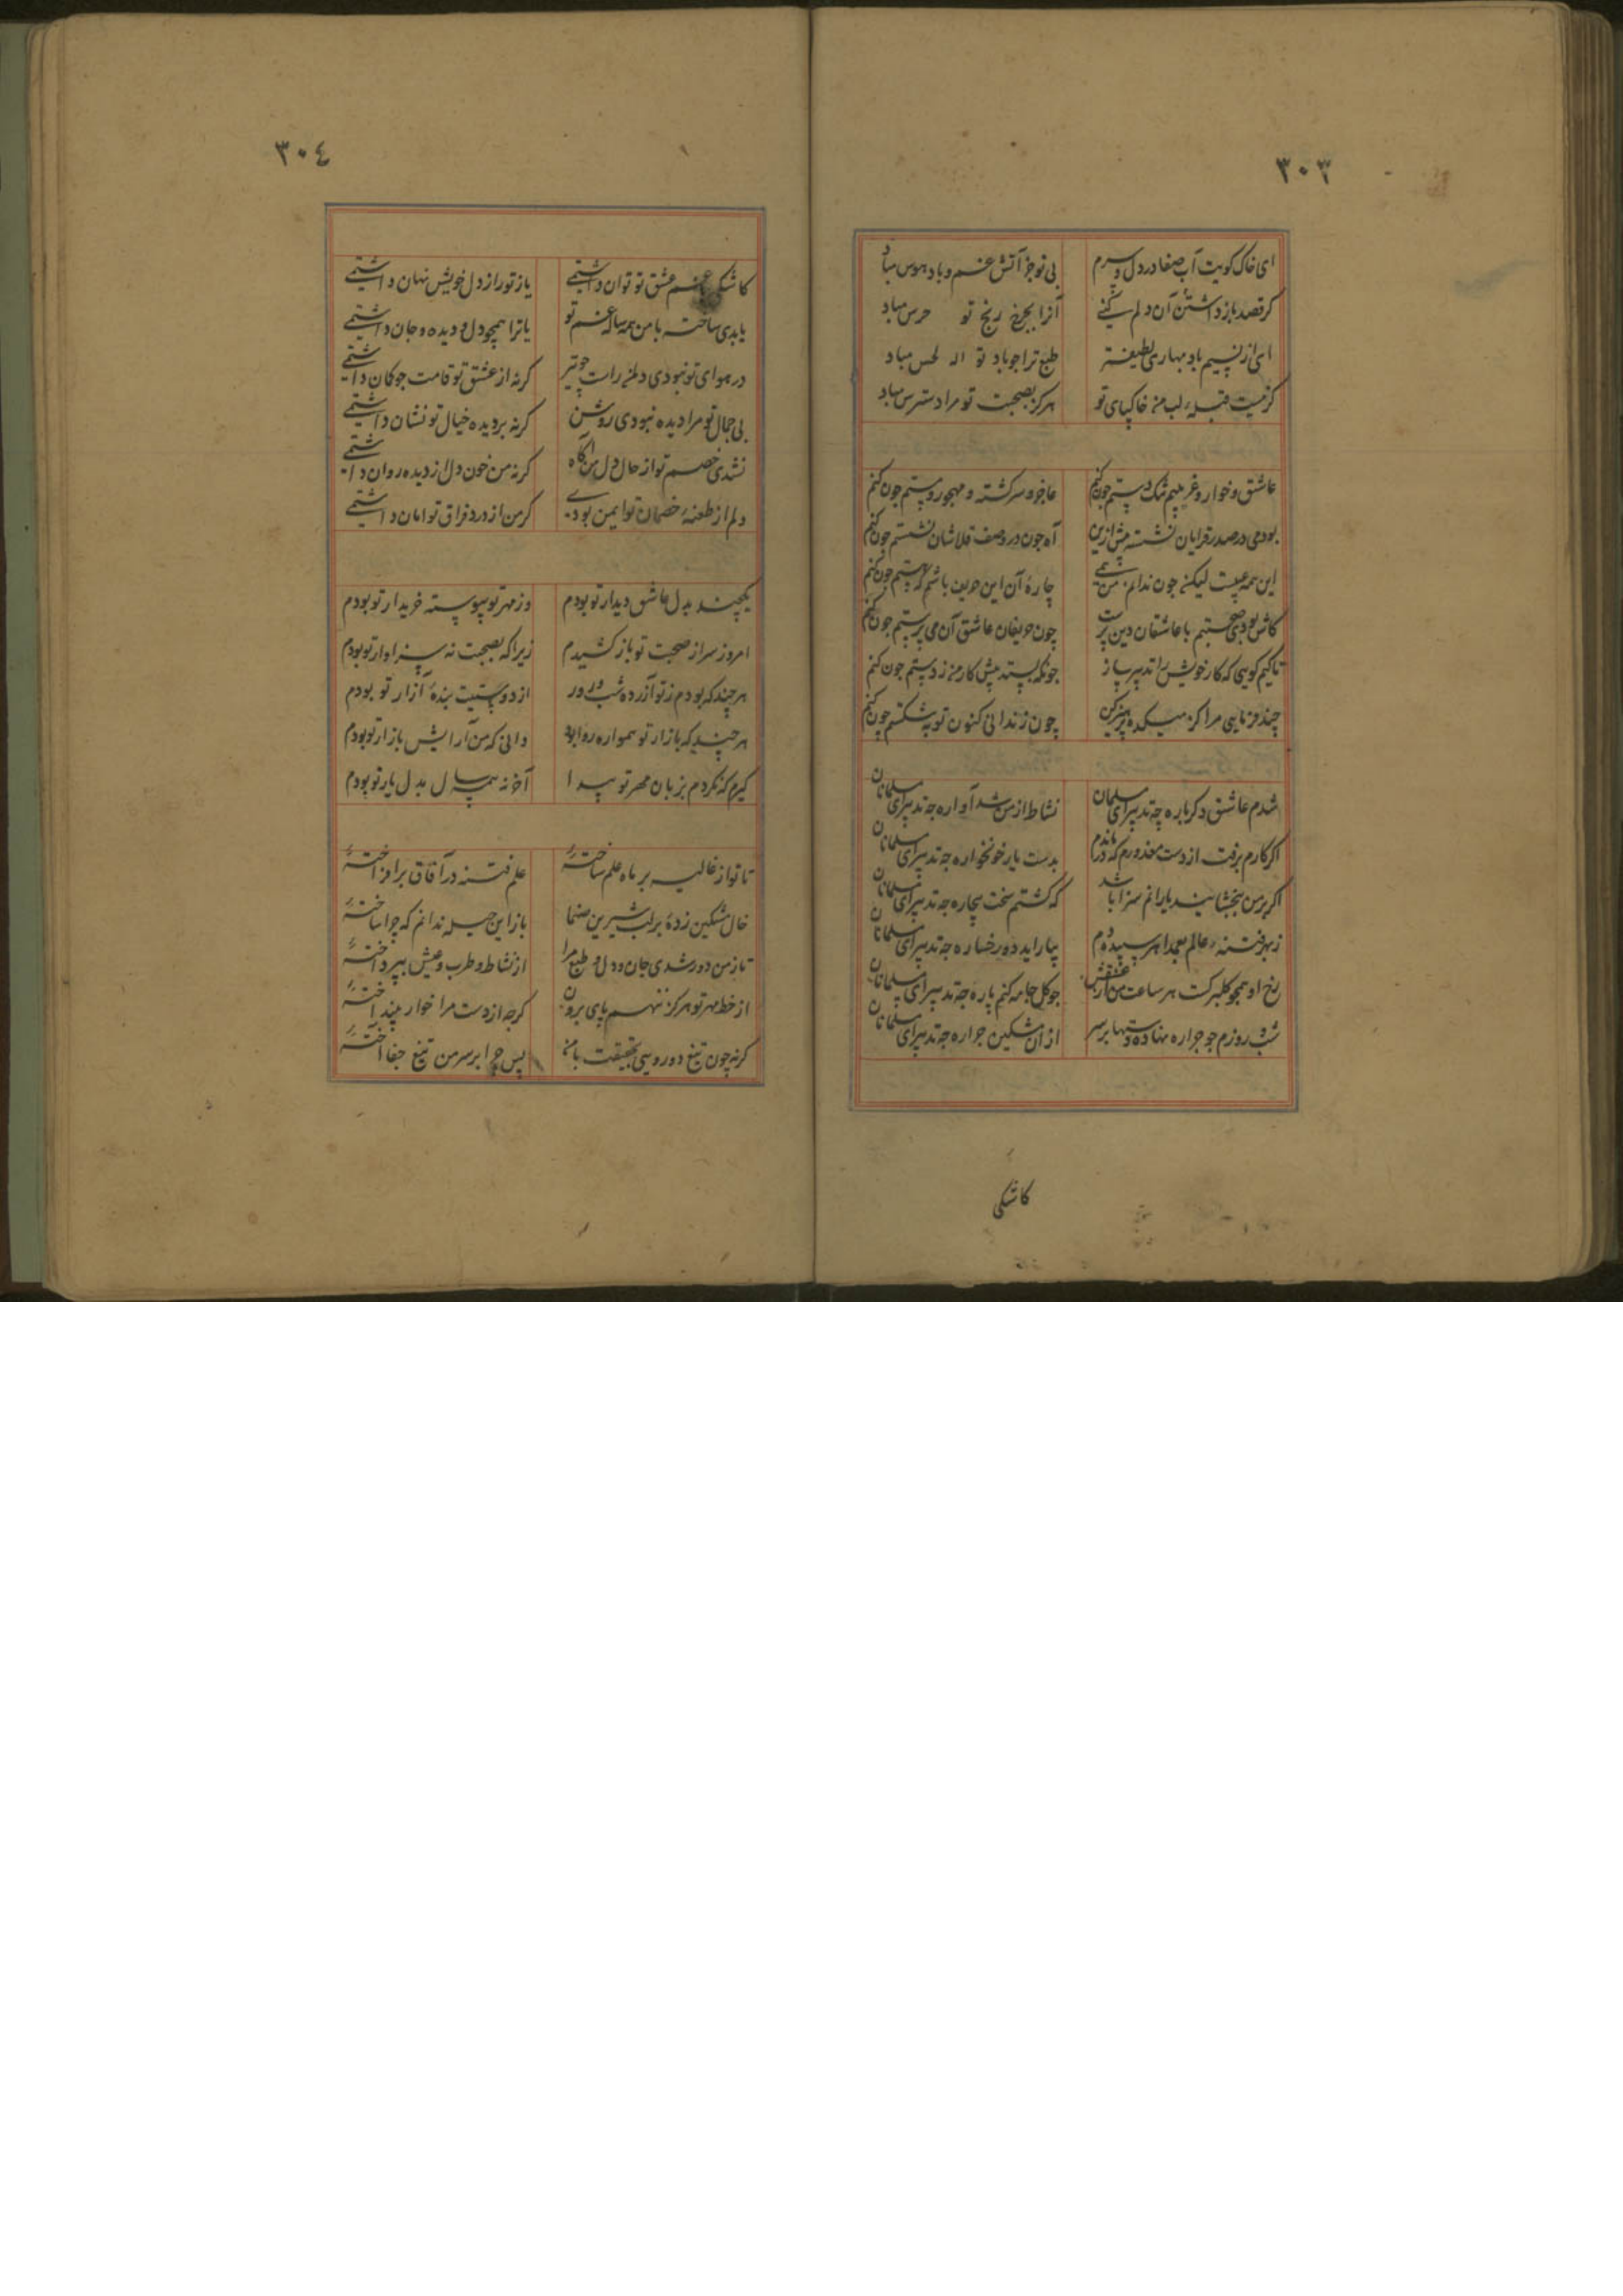 ۳۰۳
ای خاک کویت آب صفا در دل و سرم بی تو جز آتش غم و باد هوس مباد
کر قصد باز داشتن آن دلم کنی آنرا بجز رنج تو حرس مباد
ای از نسیم باد بهاری لطیفتر طبع ترا جو باد تو مباد
کر نیست قبله لب من خاکپای تو هرکز بصحبت تو مرا دسترس مباد
عاشق و خوار و غریبم تنک دستم جون کنم عاجز و سرکشته و مهجور و مستم جون کنم
بودمی در صدر قرایان نشسته پیش ازین آه جون در وصف قلاشان نشستم جون کنم
این همه عیبست لیکن جون ندانم من همی چارهٔ آن این حریف باشم که هستم جون کنم
کاش بودی صحبتم با عاشقان دین پرست چون حریفان عاشق آن می پرستم جون کنم
تا کیم کویی که کار خویش را تدبیر ساز جونکه بستد پیش کار من ز دستم جون کنم
چند فرمایی مرا کز میکده پرهیز کن چون ز نادانی کنون توبه شکستم جون کنم
شدم عاشق دکرباره چه تدبیر ای مسلمانان نشاط از من شد آواره جه تدبیر ای مسلمانان
اکر کارم برفت از دست معذورم که درماندم بدست یار خونخواره جه تدبیر ای مسلمانان
اکر بر من ببخشایند یارانم سزا باشد که کشتم سخت بیچاره جه تدبیر ای مسلمانان
ز بهر فتنه عالم بعمدا هر سپیده دم بیاراید دو رخساره جه تدبیر ای مسلمانان
رخ او همچو کلبرکست هر ساعت من از عشقش جو کل جامه کنم پاره جه تدبیر ای مسلمانان
شب و روزم جو جراره نهاده دستها بر سر از آن مشکین جراره جه تدبیر ای مسلمانان
کاشکی
۳۰٤
کاشکی با غم عشق تو توان داشتمی یا ز تو راز دل خویش نهان داشتمی
یا بدی ساخته با من همه ساله غم تو یا ترا همچو دل و دیده و جان داشتمی
در هوای تو نبودی دل من راست چو تیر کرنه از عشق تو قامت جو کمان داشتمی
بی جمال تو مرا دیده نبودی روشن کرنه بر دیده خیال تو نشان داشتمی
نشدی خصم تو از حال دل من آکاه کرنه من خون دل از دیده روان داشتمی
دلم از طعنهٔ خصمان تو ایمن بودی کر من از درد فراق تو امان داشتمی
یکچند بدل عاشق دیدار تو بودم وز مهر تو پیوسته خریدار تو بودم
امروز سر از صحبت تو باز کشیدم زیرا که بصحبت نه سزاوار تو بودم
هر چند که بودم ز تو آزرده شب و روز از دوستیت بندهٔ آزار تو بودم
هر چند که بازار تو همواره روا بود دانی که من آرایش بازار تو بودم
کیرم که نکردم بزبان مهر تو پیدا آخر نه همه سال بدل یار تو بودم
تا تو از غالیه بر ماه علم ساختهٔ علم فتنه در آفاق برافراختهٔ
خال مشکین زدهٔ بر لب شیرین صنما باز این حیله ندانم که چرا ساختهٔ
تا ز من دور شدی جان و دل و طبع مرا از نشاط و طرب و عیش بپرداختهٔ
از خط مهر تو هرکز ننهم پای برون کرجه از دست مرا خوار بینداختهٔ
کرنه چون تیغ دورویی بحقیقت با من پس چرا بر سر من تیغ جفا آختهٔ